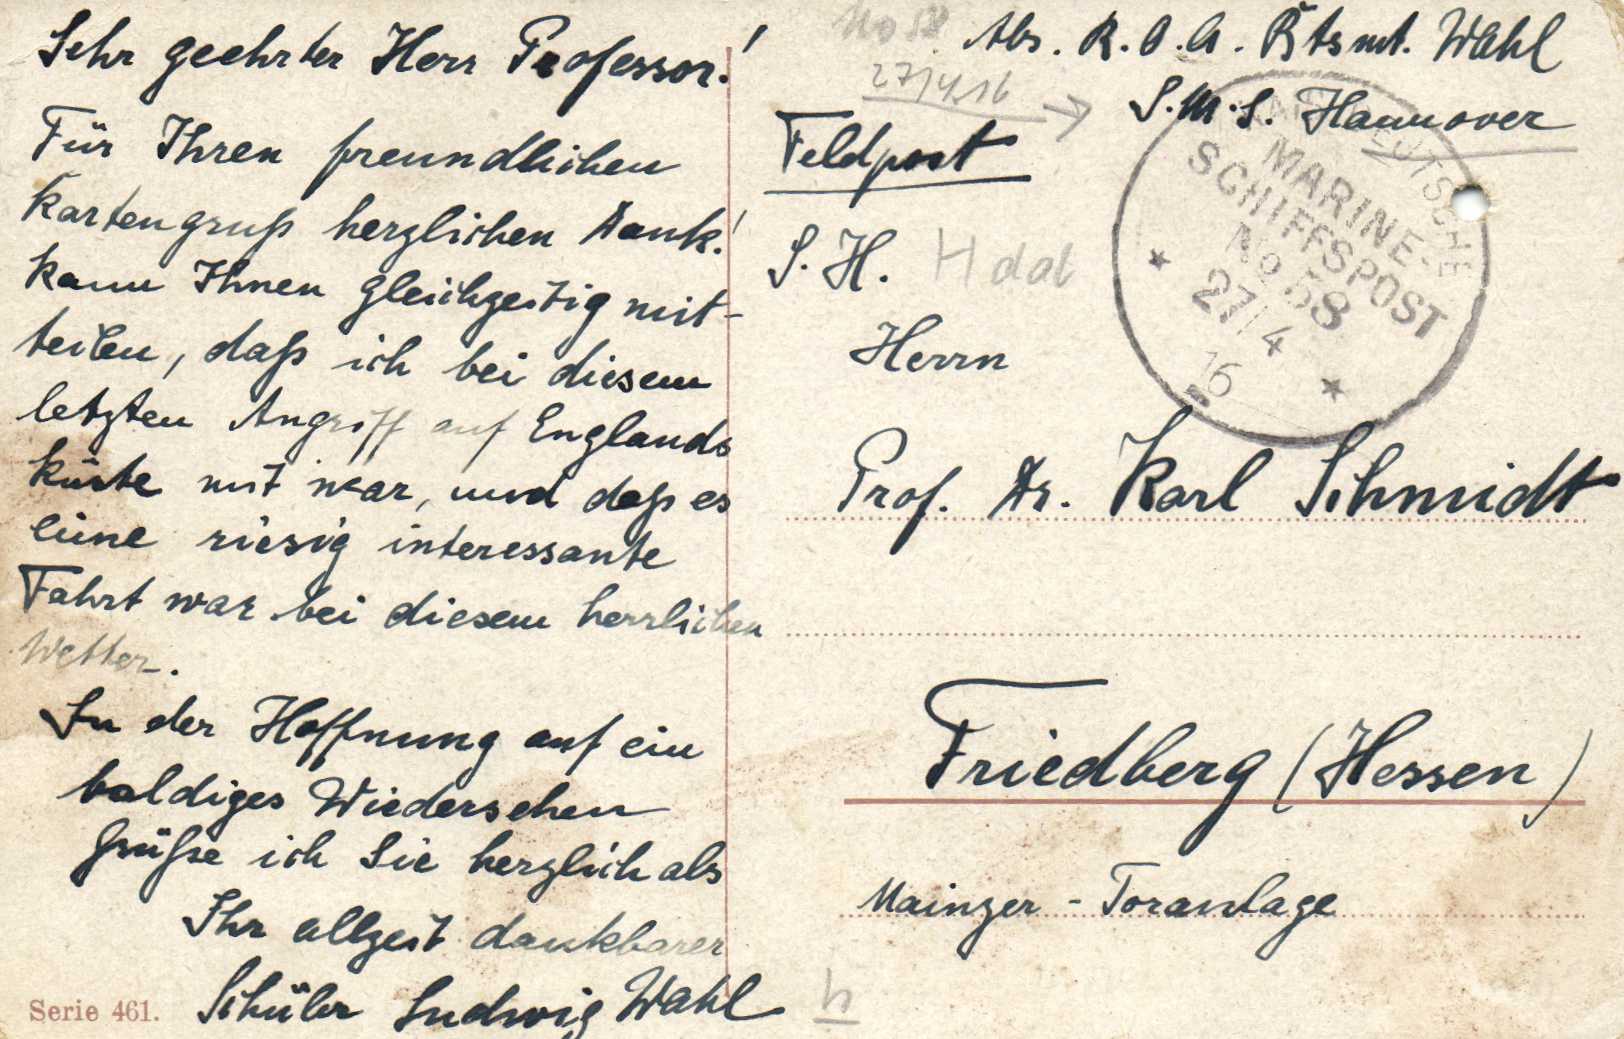 Sehr geehrter Herr Professor!
Für Ihren freundlichen
Kartengruß herzlichen Dank!
Kann Ihnen gleichzeitig mit-
teilen, daß ich bei diesem
letzten Angriff auf Englands
Küste mit war, und daß es
eine riesig interessante
Fahrt war bei diesem herrlichen
Wetter.
In der Hoffnung auf ein
baldiges Wiedersehen
grüße ich Sie herzlich als
Ihr allzeit dankbarer
Schüler Ludwig Wahl
Serie 461.
No 58
27/4.16
Abs. R.O.A. Btsmt. Wahl
S.M.S. Hannover
Feldpost
S. H.
DEUTSCHE
MARINE-
SCHIFFSPOST
No 58
27/4
16
Herrn
Prof. Dr. Karl Schmidt
Friedberg (Hessen)
Mainzer-Toranlage
h